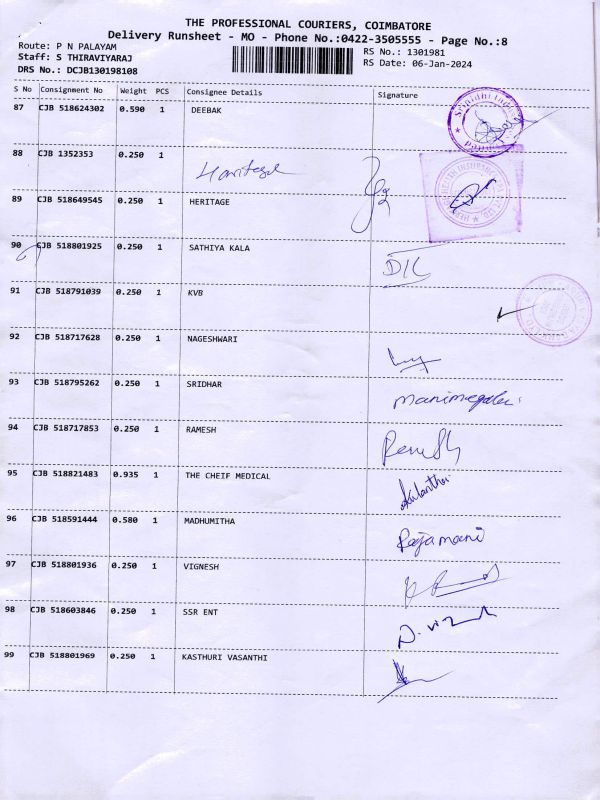 THE PROFESSIONAL COURIERS, COIMBATORE
Delivery Runsheet - MO - Phone No.:0422-3505555 - Page No.:8
Route: P N PALAYAM
Staff: S THIRAVIYARAJ
DRS No.: DCJB130198108
RS No.: 1301981
RS Date: 06-Jan-2024
S No Consignment No Weight PCS Consignee Details Signature
87 CJB 518624302 0.590 1 DEEBAK
88 CJB 1352353 0.250 1 Heritage
89 CJB 518649545 0.250 1 HERITAGE
90 CJB 518801925 0.250 1 SATHIYA KALA D/L
91 CJB 518791039 0.250 1 KVB
92 CJB 518717628 0.250 1 NAGESHWARI
93 CJB 518795262 0.250 1 SRIDHAR Manimegalai
94 CJB 518717853 0.250 1 RAMESH Ramesh
95 CJB 518821483 0.935 1 THE CHEIF MEDICAL
96 CJB 518591444 0.580 1 MADHUMITHA Rajamani
97 CJB 518801936 0.250 1 VIGNESH
98 CJB 518603846 0.250 1 SSR ENT
99 CJB 518801969 0.250 1 KASTHURI VASANTHI